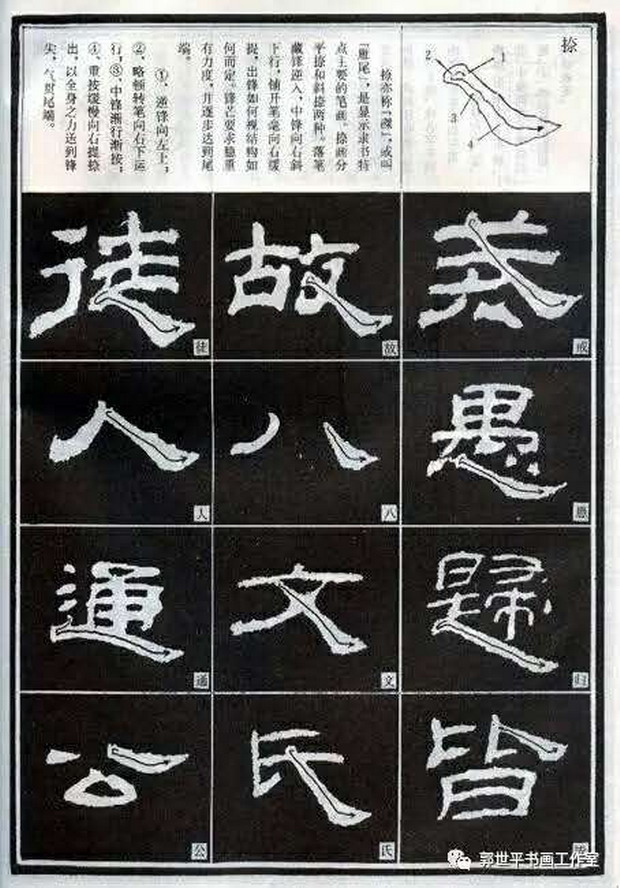 捺
1
2
3
4
捺亦称“磔”，或叫
“雁尾”，是显示隶书特
点主要的笔画。捺画分
平捺和斜捺两种。落笔
藏锋逆入，中锋向右斜
下行，铺开笔毫向右缓
提，出锋如何视结构如
何而定。锋芒要求稳重
有力度，并逐步达到尾
端。
①、逆锋向左上；
②、略顿转笔向右下运
行；③、中锋渐行渐按；
④、重按缓慢向右提捺
出，以全身之力送到锋
尖，气贯尾端。
故
故
徒
徒
愚
愚
八
八
人
人
归
文
文
通
通
皆
氏
氏
公
公
郭世平书画工作室